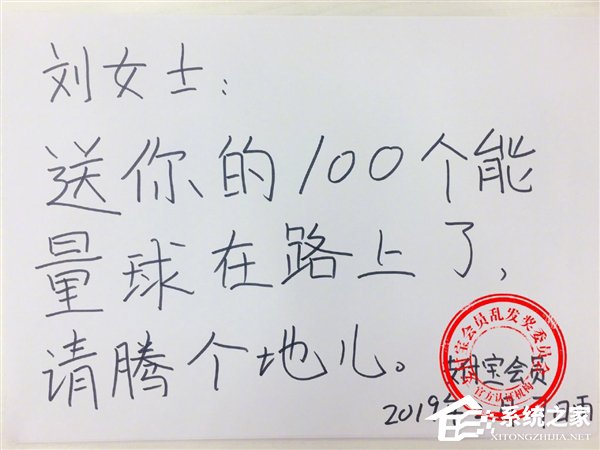 刘女士：
送你的100个能
量球在路上了，
请腾个地儿。
支付宝会员乱发奖委员会
官方认证机构
支付宝会员
2019年
系统之家
XITONGZHIJIA.NET